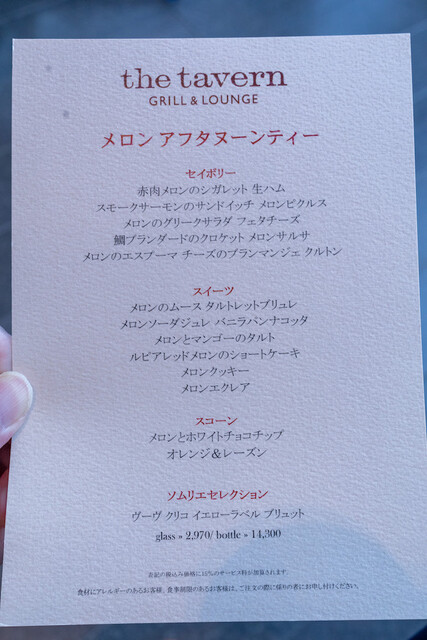 the tavern
GRILL & LOUNGE
メロン アフタヌーンティー
セイボリー
赤肉メロンのシガレット 生ハム
スモークサーモンのサンドイッチ メロンピクルス
メロンのグリークサラダ フェタチーズ
鯛ブランダードのクロケット メロンサルサ
メロンのエスプーマ チーズのブランマンジェ クルトン
スイーツ
メロンのムース タルトレットブリュレ
メロンソーダジュレ バニラパンナコッタ
メロンとマンゴーのタルト
ルビアレッドメロンのショートケーキ
メロンクッキー
メロンエクレア
スコーン
メロンとホワイトチョコチップ
オレンジ&レーズン
ソムリエセレクション
ヴーヴ クリコ イエローラベル ブリュット
glass » 2,970/ bottle » 14,300
上記の税込み価格に15%のサービス料が加算されます。
食材にアレルギーのあるお客様、食事制限のあるお客様は、ご注文の際に係りの者にお申し付けください。